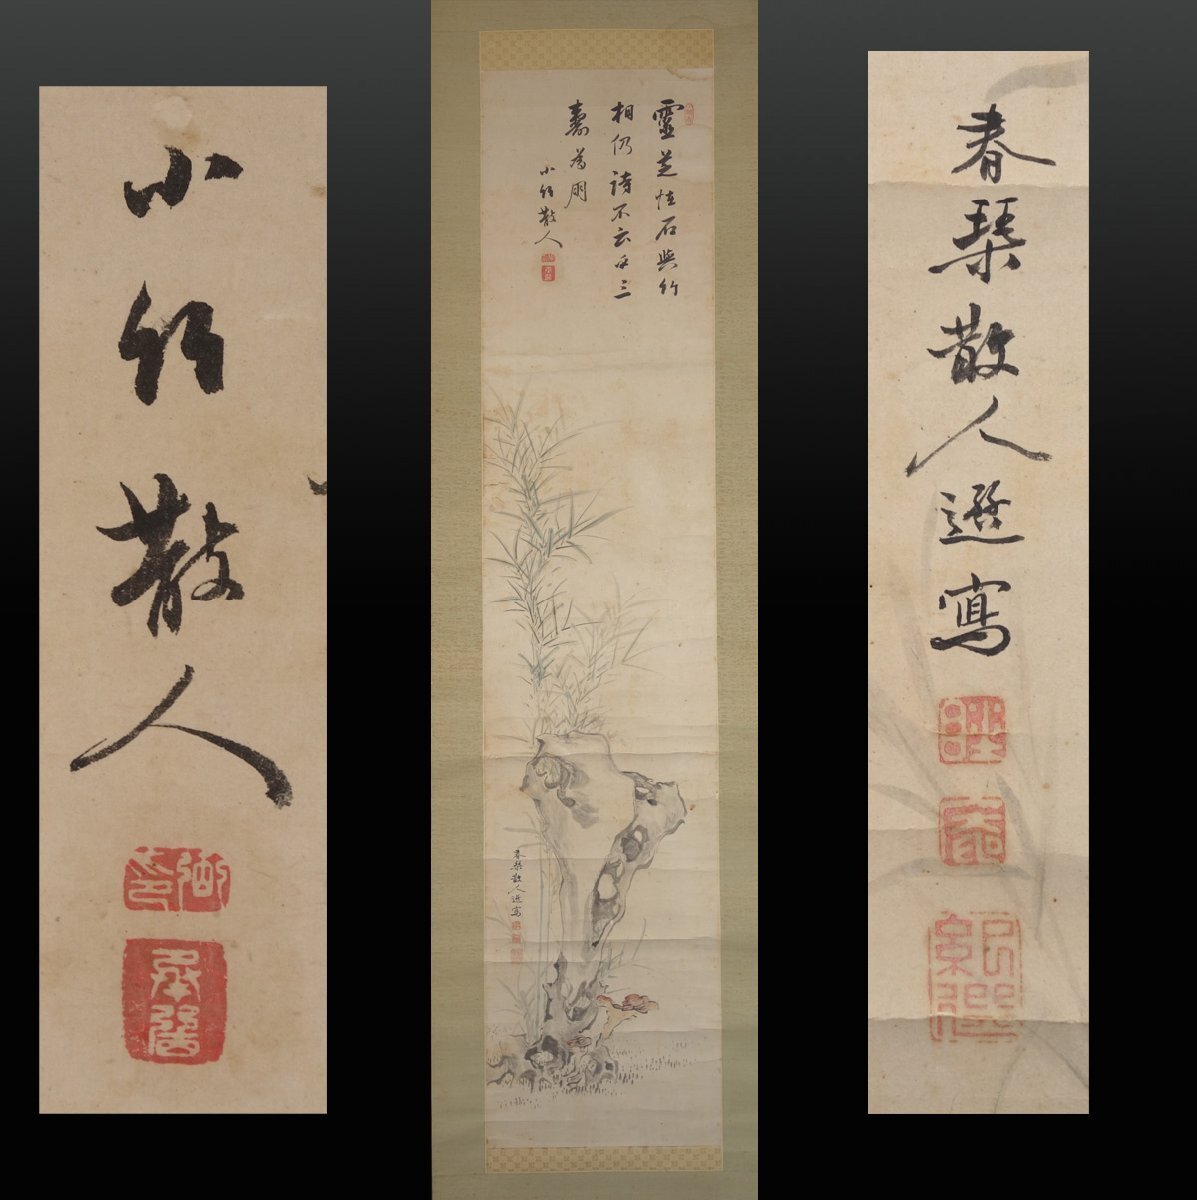 小竹散人
承弼
靈芝恠石與竹
相仍詩不云乎三
壽為朋
小竹散人
春琴散人選寫
春琴散人選寫
紀選